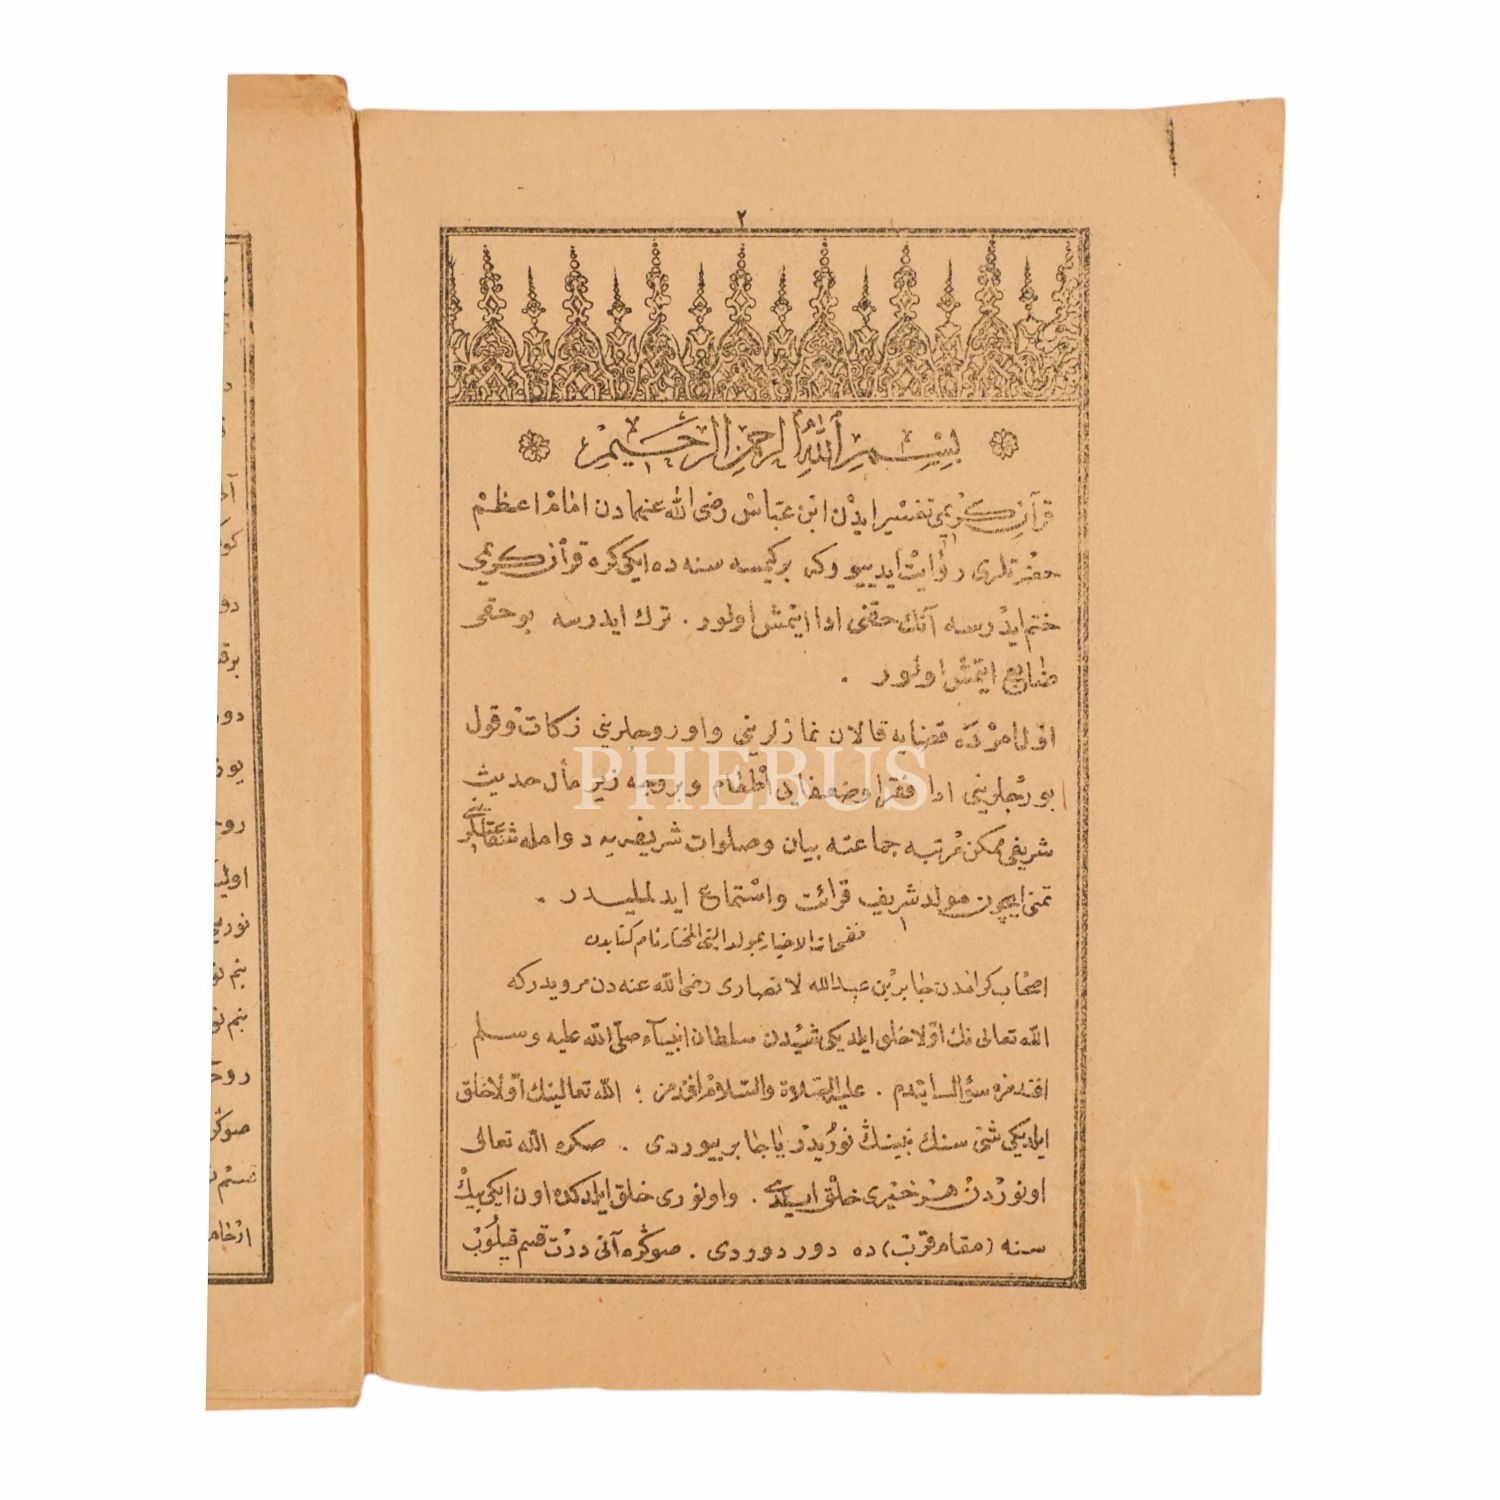 ٢
بسم الله الرحمن الرحيم
قرآن كريمى تفسير ايدن ابن عباس رضى الله عنهمادن امام اعظم
حضرتلرى روايت ايدييور كه بر كيمسه سنه ده ايكى كره قرآن كريمى
ختم ايدرسه آنك حقنى ادا ايتمش اولور . ترك ايدرسه بو حقى
ضايع ايتمش اولور .
اول امرده قضايه قالان نمازلرينى و اوروجلرينى زكات و قول
بورجلرينى ادا فقرا و ضعفايى اطعام و بروجه زير مأل حديث
شريفى ممكن مرتبه جماعته بيان و صلوات شريفه يه دوامله
تمنى ايچون مولد شريف قرائت و استماع ايدلمليدر .
نفحات الاخيار بمولد النبى المختار نام كتابدن
اصحاب كرامدن جابر بن عبد الله لانصارى رضى الله عنه دن مرويدر كه
الله تعالى نك اولا خلق ايلديكى شيدن سلطان انبيآء صلى الله عليه وسلم
افندمزه سؤال ايتدم . عليه الصلاة والسلام افندمز : الله تعالينك اولا خلق
ايلديكى شئ سنك نبينڭ نوريدر يا جابر بييوردى . صكره الله تعالى
او نوردن هر خيرى خلق ايلدى . و او نورى خلق ايلدكده اون ايكى بيڭ
سنه (مقام قربت) ده دور دوردى . صوڭره آنى درت قسم قيلوب
PHEBUS